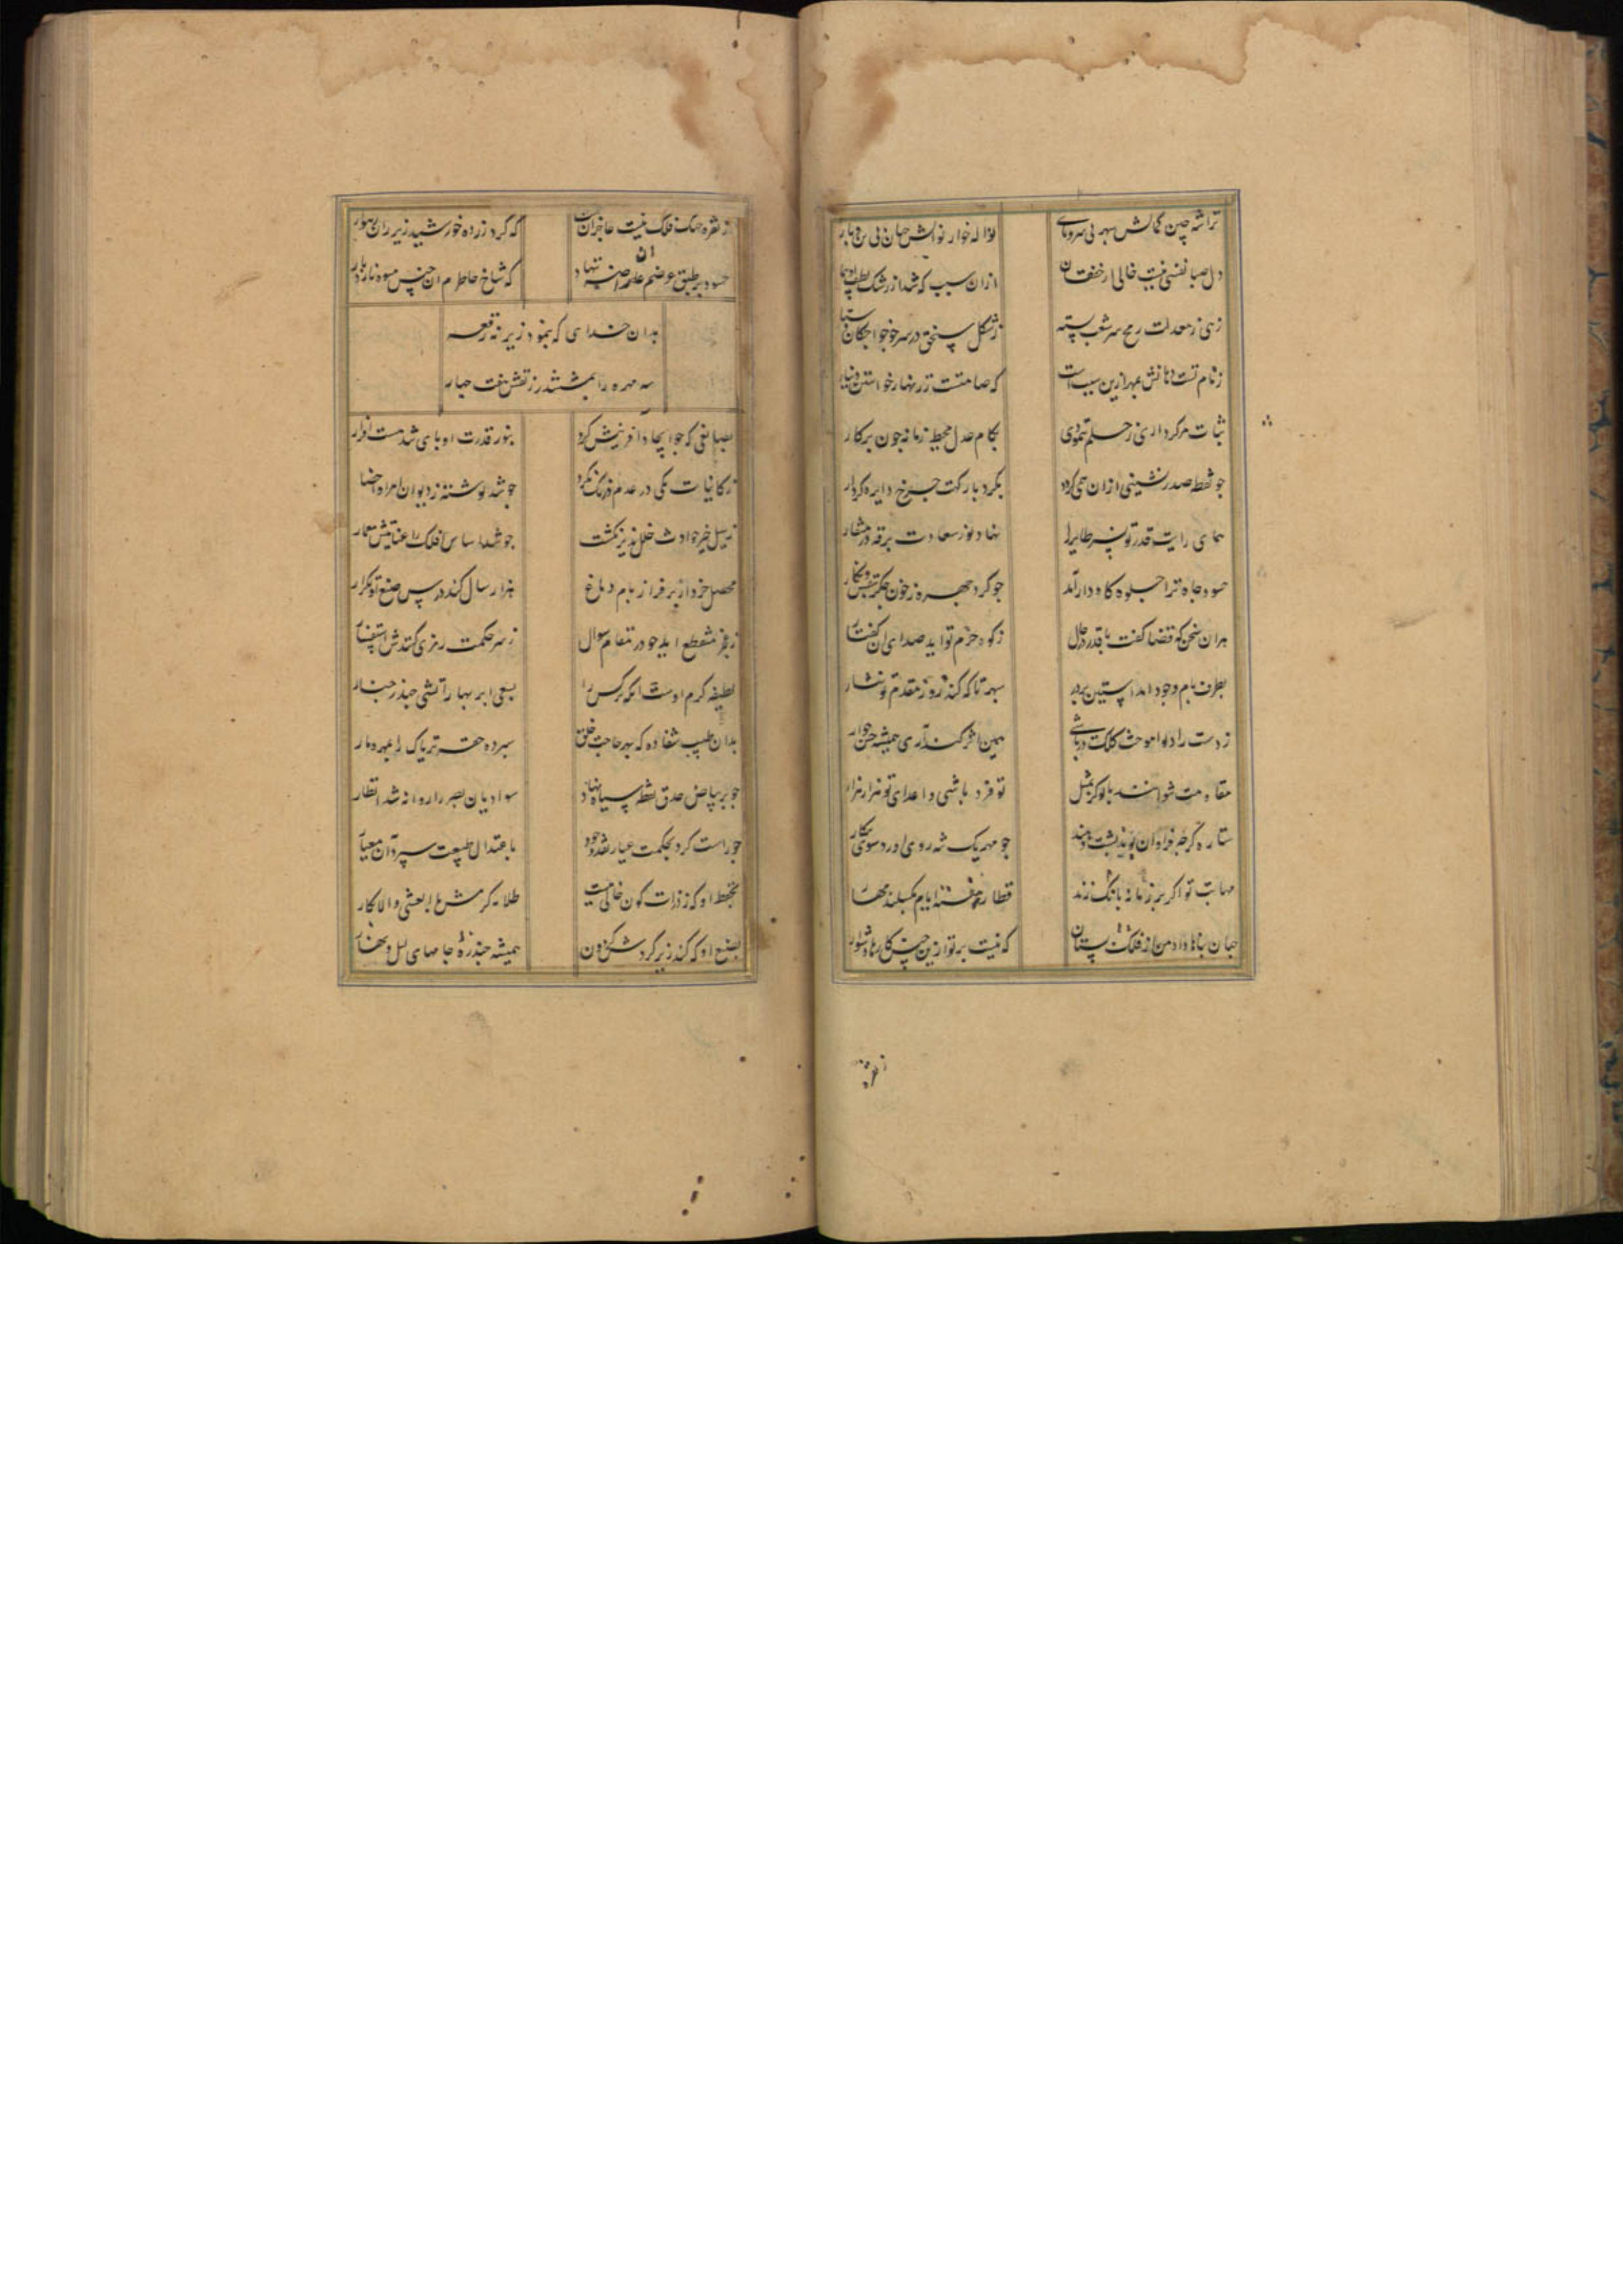 تراشه چین کمالش سپهر بی سروپای
نواله خوار نوالش جهان بی بن و بار
دل صبا نفسی نیست خالی از خفقان
ازان سبب که شد از رشک لطف او بیمار
زهی ز معدلت رمح سر شعب بسته
ز شکل در سر خواجگان دستار
ز نام تست دهانش بمهر ازین سبب است
که صامتست زر
ثبات مرکز داری ز حلم ننمودی
بکام عدل محیط زمانه چون پرکار
چو نقطه صدرنشینی ازان همی کردد
بکرد بارکهت چرخ دایره کردار
همای رایت قدر تو نسر طایر را
نهاد نور سعادت برقه در منقار
حسود جاه ترا جلوه کاه دار آمد
جو کرد چهره ز خون جکر بنقش و نکار
هران سخن که قضا کفت با قدر در حال
ز کوه حزم تو اید صدای ان کفتار
بطرف بام وجود امد استین بر در
سپهر تا که کند روز مقدم تو نثار
ز دست راد تو اموخت کلک در پاشی
یمین اثر کند آری همیشه حق جوار
مقاومت نتوانند با تو کر بمثل
تو فرد باشی و اعدای تو هزار هزار
ستاره کرچه فراوان بوند پشت دهند
جو مهر یک تنه روی اورد سوی پیکار
مهابت تو اکر بر زمانه بانک زند
قطار هفته ایام بکسلند مهار
جهان پناها داد من از فلک بستان
که نیست بر تو ازین جنس کارها دشوار
ز نقره
ز نقره خنک فلک نیست عاجز ان
که کرد زرده خورشید زیر ران رهوار
حسود بر طبق عرضم علم خسته نهاد
که شاخ خاطرم ان جنس میوه نارد بار
بدان خدای که بنمود زیر نه رقعه
سه مهره را بمششدر ز نقش هفت جهار
بصانعی که جو ایجاد افرینش کرد
بنور قدرت او پای شد مست افزار
ز کاینات یکی در عدم درنک نکرد
چو شد نوشته ز دیوان امر او احضار
ز سیل خیز حوادث خلل پذیر نکشت
جو شد اساس فلک را عنایتش معمار
محصل خرد از بر فراز بام دماغ
هزار سال کند درس صنع او تکرار
ز عجز منقطع اید جو در مقام سوال
ز سر حکمت رمزی کنندش استفسار
لطیفه کرم اوست انکه نرکس را
بسعی ابر بهار آتشی جهد ز جنار
بدان طبیب شفاده که بهر حاجت خلق
سپرده حقه تریاک را بمهره مار
جو بر بیاض حدق نقطه سیاه نهاد
سوادیان بصر را روانه شد انظار
جو راست کرد بحکمت عیار نقد وجود
باعتدال طبیعت سپرد آن معیار
بحفظ او که ز ذرات کون خالی نیست
طلایه کر مش بالعشی والابکار
بصنع او که کند زیر کردش کردون
همیشه خنذره جامهای لیل و نهار